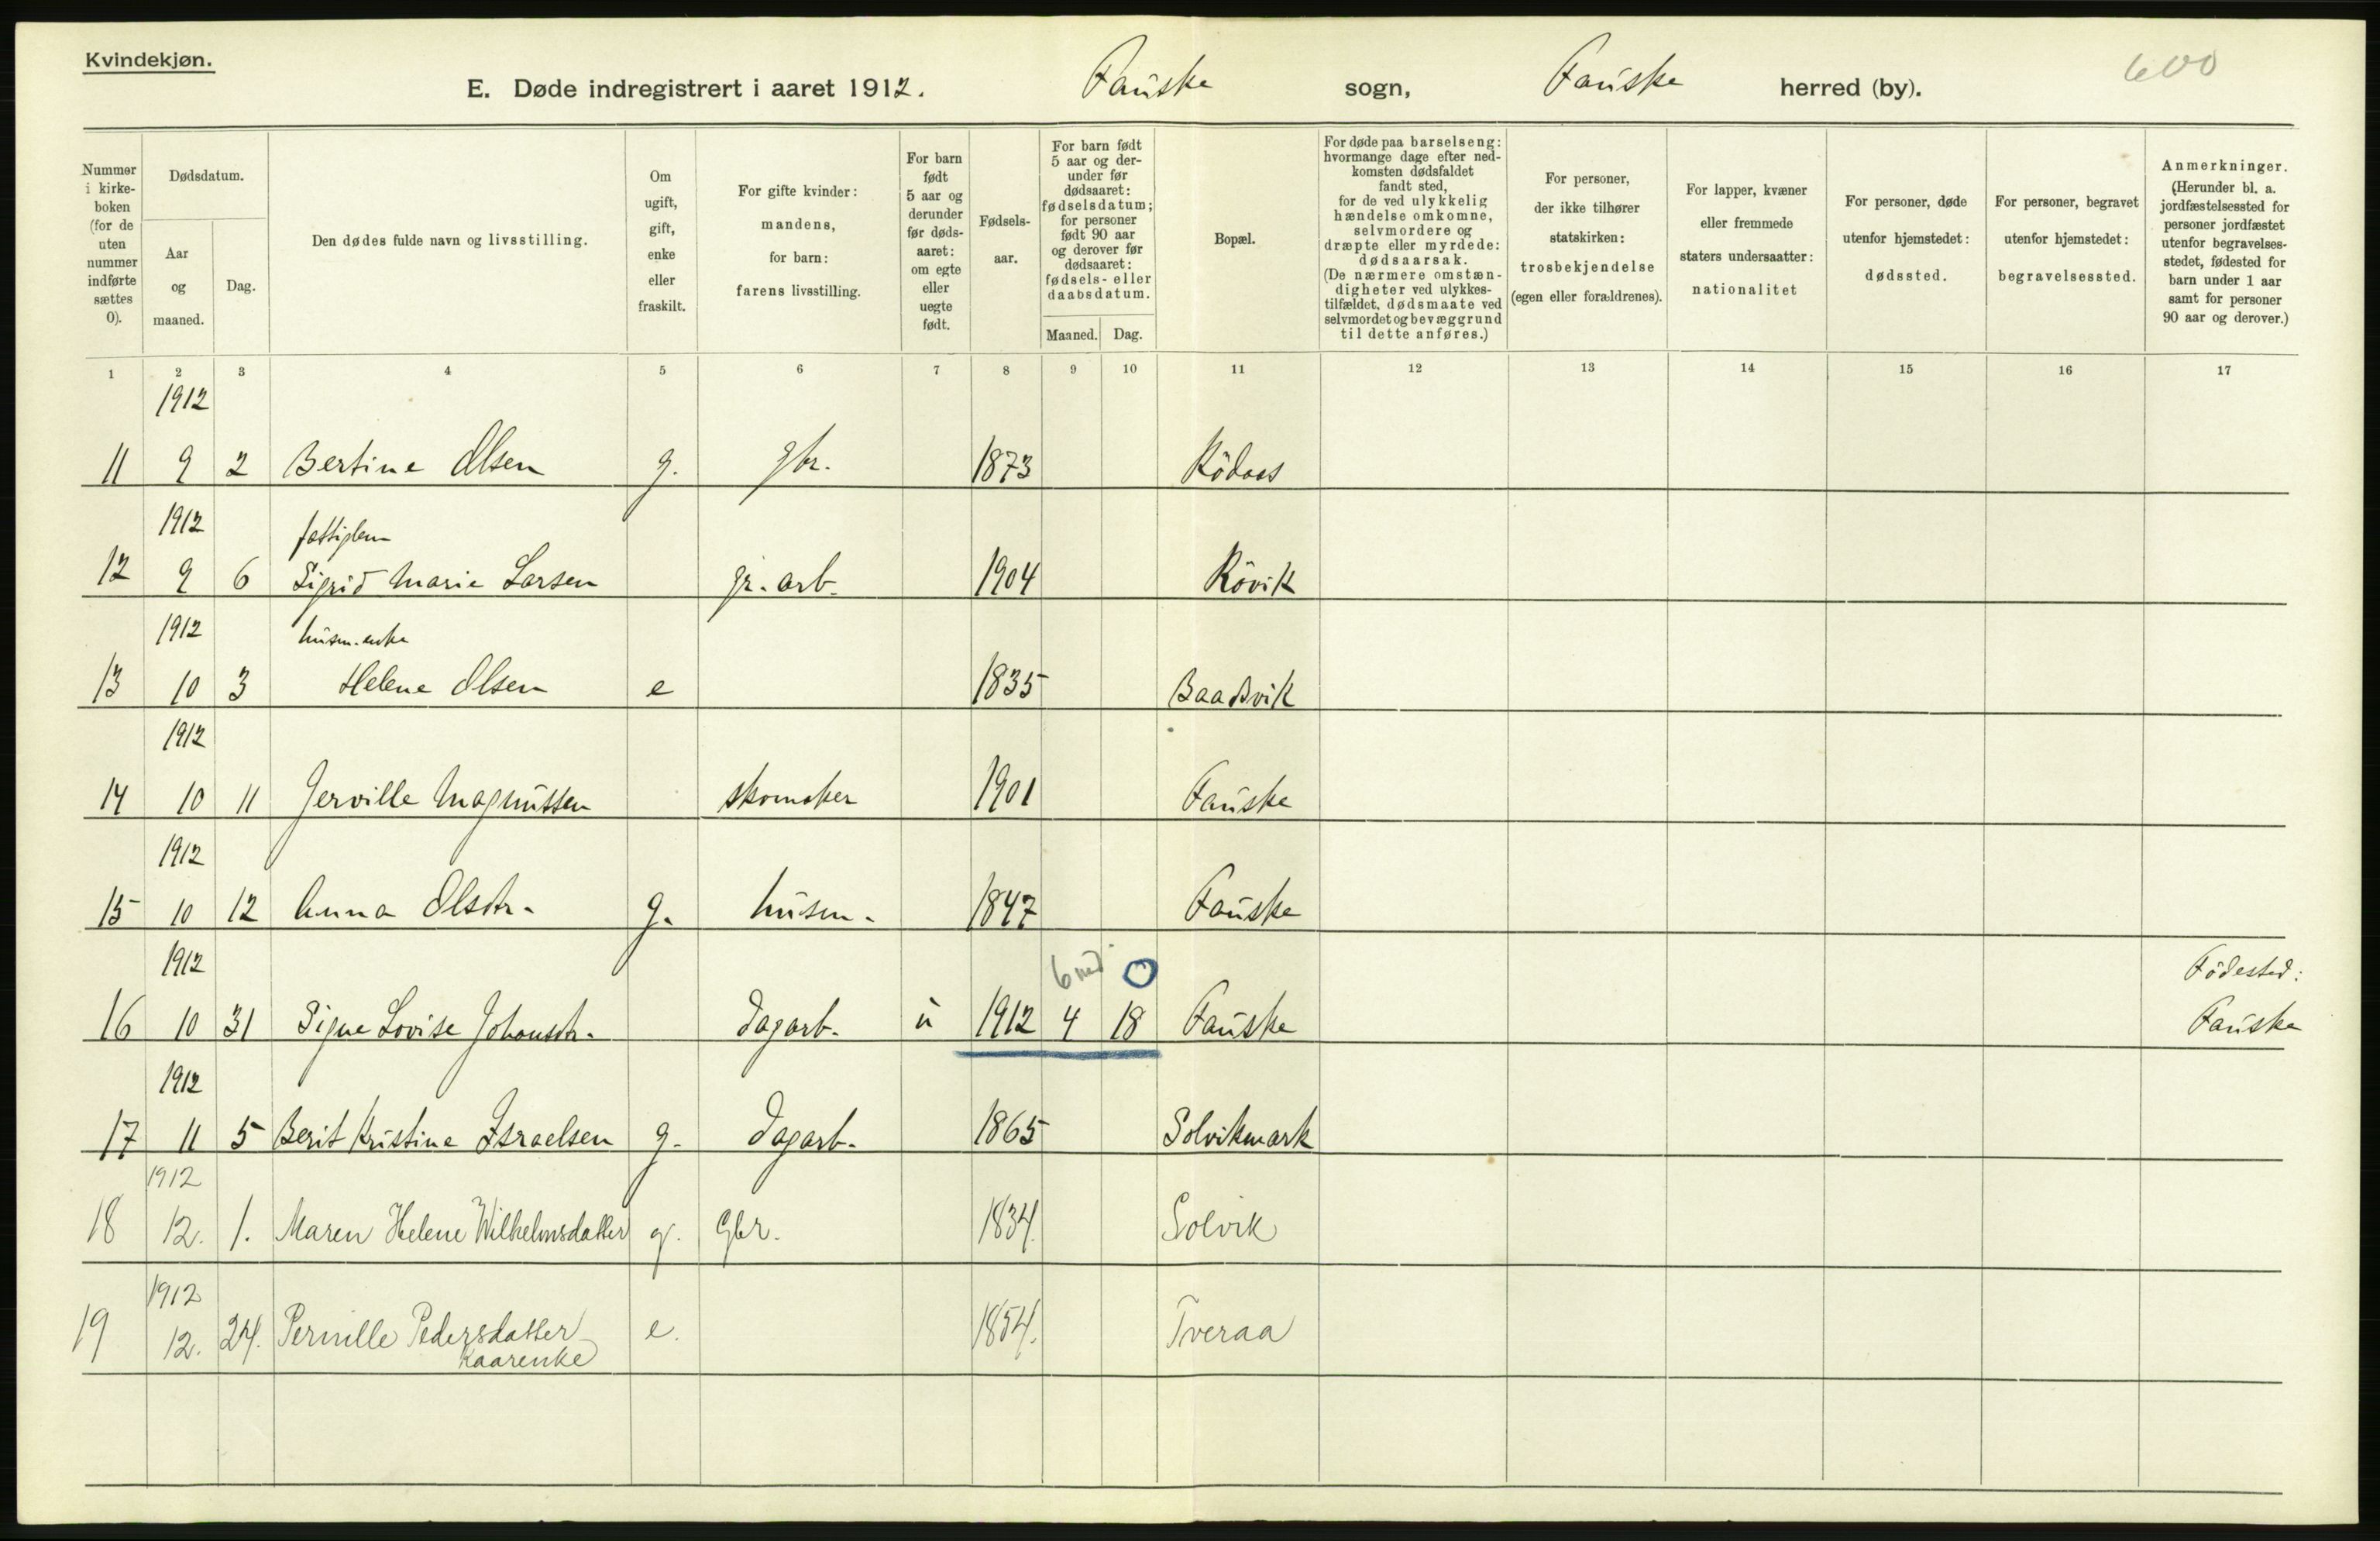 Kvindekjøn.
E. Døde indregistrert i aaret 1912. Fauske sogn, Fauske herred (by). 600
Nummer i kirke-boken (for de uten nummer indførte sættes 0).
Dødsdatum.
Aar og maaned.
Dag.
Den dødes fulde navn og livsstilling.
Om ugift, gift, enke eller fraskilt.
For gifte kvinder: mandens, for barn: farens livsstilling.
For barn født 5 aar og derunder før døds-aaret: om egte eller uegte født.
Fødsels-aar.
For barn født 5 aar og der-under før dødsaaret: fødselsdatum; for personer født 90 aar og derover før dødsaaret: fødsels- eller daabsdatum.
Maaned. Dag.
Bopæl.
For døde paa barselseng: hvormange dage efter ned-komsten dødsfaldet fandt sted, for de ved ulykkelig hændelse omkomne, selvmordere og dræpte eller myrdede: dødsaarsak. (De nærmere omstæn-digheter ved ulykkes-tilfældet, dødsmaate ved selvmordet og bevæggrund til dette anføres.)
For personer, der ikke tilhører statskirken: trosbekjendelse (egen eller forældrenes).
For lapper, kvæner eller fremmede staters undersaatter: nationalitet
For personer, døde utenfor hjemstedet: dødssted.
For personer, begravet utenfor hjemstedet: begravelsessted.
Anmerkninger. (Herunder bl. a. jordfæstelsessted for personer jordfæstet utenfor begravelses-stedet, fødested for barn under 1 aar samt for personer 90 aar og derover.)
1 2 3 4 5 6 7 8 9 10 11 12 13 14 15 16 17
1912
11 9 2 Bertine Olsen g. gbr. 1873
1912
12 9 6 Sigrid Marie Larsen gr. arb. 1904 Røvik
1912 husm. enke
13 10 3 Helene Olsen e 1835 Baadsvik
1912
14 10 11 Jerville Magnussen skomaker 1901 Fauske
1912
15 10 12 Anna Olsdtr. g. husm. 1847 Fauske
1912 6 md 0 Fødested:
16 10 31 Signe Lovise Johansdtr. dagarb. u 1912 4 18 Fauske Fauske
1912
17 11 5 Berit Kristine Israelsen g. dagarb. 1865 Solvikmark
1912
18 12. 1. Maren Helene Wilhelmsdatter g. Gbr. 1834. Solvik
1912
19 12. 24. Pernille Pedersdatter e. 1854. Tveraa
Kaarenke